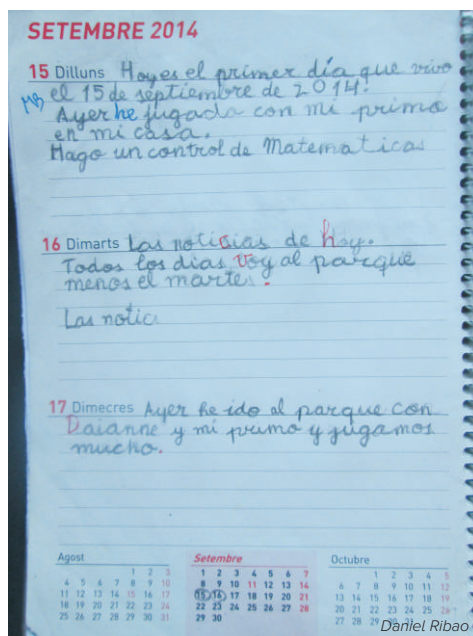 SETEMBRE 2014
15 Dilluns Hoy es el primer día que vivo
MB el 15 de septiembre de 2014!
Ayer he jugada con mi primo
en mi casa.
Hago un control de Matematicas
16 Dimarts Las noticias de hoy.
Todos los dias voy al parque
menos el martes.
Las notic
17 Dimecres Ayer he ido al parque con
Daianne y mi primo y jugamos
mucho.
Agost
1 2 3
4 5 6 7 8 9 10
11 12 13 14 15 16 17
18 19 20 21 22 23 24
25 26 27 28 29 30 31
Setembre
1 2 3 4 5 6 7
8 9 10 11 12 13 14
15 16 17 18 19 20 21
22 23 24 25 26 27 28
29 30
Octubre
1 2 3 4 5
6 7 8 9 10 11 12
13 14 15 16 17 18 19
20 21 22 23 24 25 26
27 28 29 30 31
Daniel Ribao